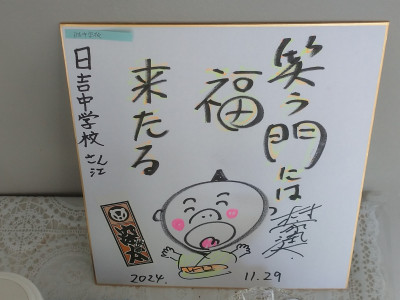 笑う門には
福
来たる
日吉中学校
さん江
2024. 11.29